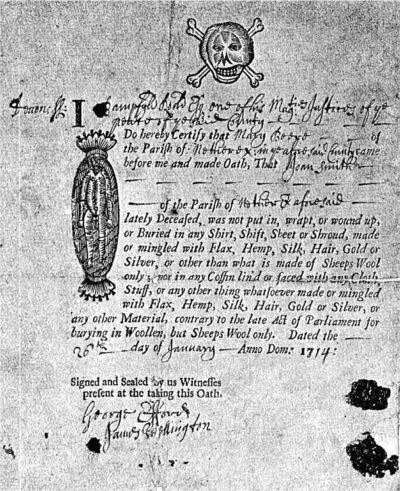 Devon: ss: I Bampfyld Rodd Esq one of his Maties Justices of ye
peace of ye said County
Do hereby Certify that Mary Beere of
the Parish of Nether Ex in ye aforesaid County came
before me and made Oath, That Joan Smith
of the Parish of Nether Ex aforesaid
lately Deceased, was not put in, wrapt, or wound up,
or Buried in any Shirt, Shift, Sheet or Shroud, made
or mingled with Flax, Hemp, Silk, Hair, Gold or
Silver, or other than what is made of Sheeps Wool
only; nor in any Coffin lin'd or faced with any Cloth,
Stuff, or any other thing whatsoever made or mingled
with Flax, Hemp, Silk, Hair, Gold or Silver, or
any other Material, contrary to the late Act of Parliament for
burying in Woollen, but Sheeps Wool only. Dated the
26th day of January Anno Dom. 1714:
Signed and Sealed by us Witnesses
present at the taking this Oath.
George
James